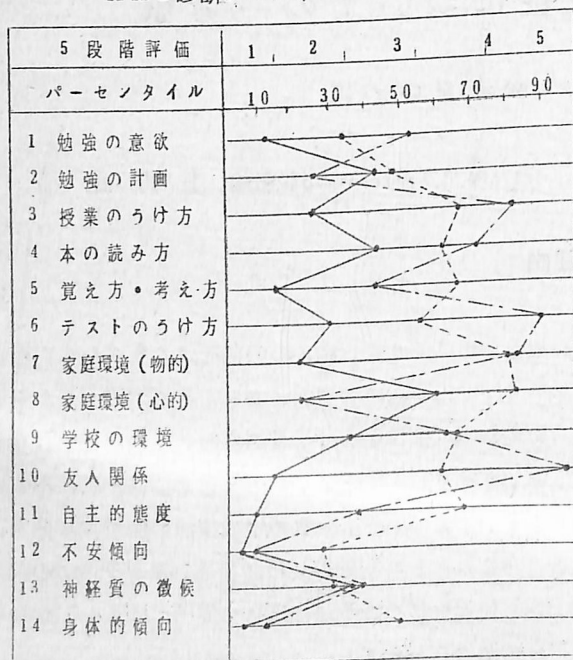 5 段 階 評 価 1 2 3 4 5
パーセンタイル 10 30 50 70 90
1 勉強の意欲
2 勉強の計画
3 授業のうけ方
4 本の読み方
5 覚え方・考え方
6 テストのうけ方
7 家庭環境(物的)
8 家庭環境(心的)
9 学校の環境
10 友人関係
11 自主的態度
12 不安傾向
13 神経質の徴候
14 身体的傾向